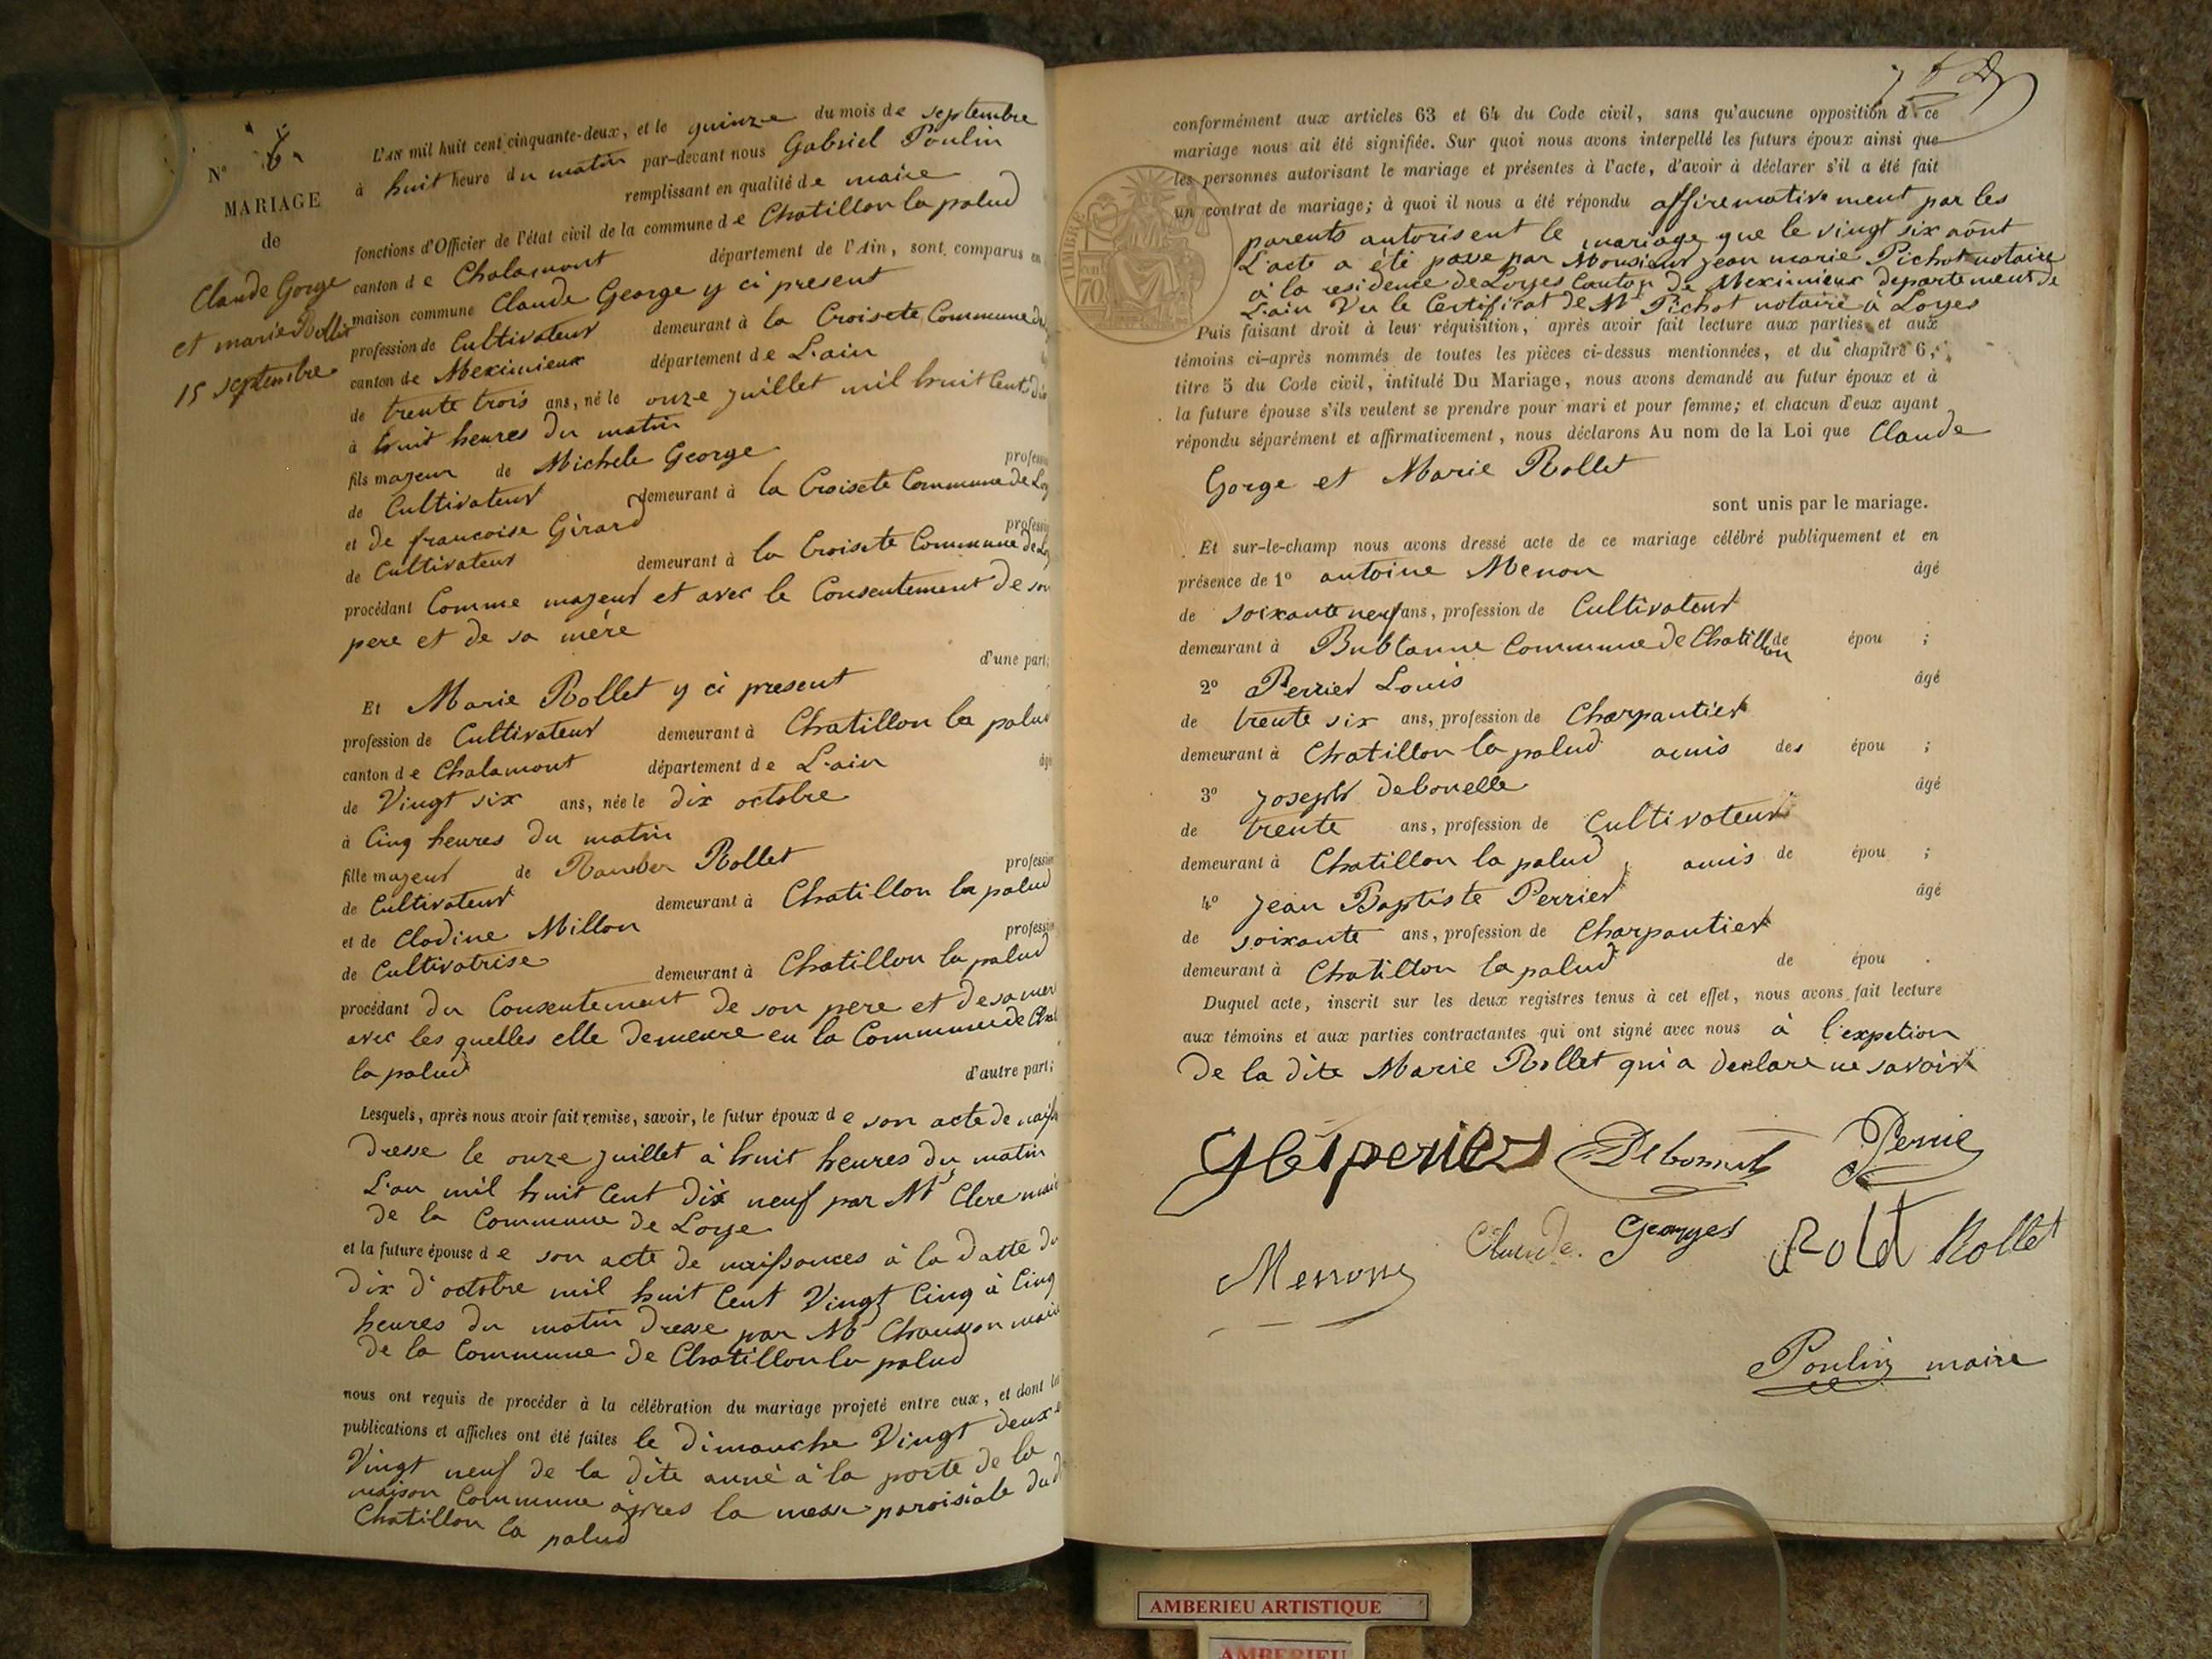 N° 6
MARIAGE
de
Claude Gorge
et marie Rollet
15 septembre
L'AN mil huit cent cinquante-deux, et le quinze du mois de septembre
à huit heure du matin par-devant nous Gabriel Poulin
remplissant en qualité de maire
fonctions d'Officier de l'état civil de la commune de Chatillon la palud
canton de Chalamont département de l'Ain, sont comparus en
maison commune Claude George y ci present
profession de Cultivateur demeurant à la Croisete Commune de
canton de Meximieux département de L'ain
de trente trois ans, né le onze juillet mil huit Cent dix
à huit heures du matin
fils majeur de Michele George profession
de Cultivateur demeurant à la Croisete Commune de Loy
et de francoise Girard profession
de Cultivateur demeurant à la Croisete Commune de Loy
procédant Comme majeur et avec le Consentement de son
pere et de sa mère
d'une part;
Et Marie Rollet y ci present
profession de Cultivateur demeurant à Chatillon la palud
canton de Chalamont département de L'ain âgé
de Vingt six ans, née le dix octobre
à Cinq heures du matin
fille majeur de Rollet profession
de Cultivateur demeurant à Chatillon la palud
et de Clodine Millon profession
de Cultivatrise demeurant à Chatillon la palud
procédant du Consentement de son pere et de sa mere
avec les quelles elle demeure en la Commune de Chat
la palud d'autre part;
Lesquels, après nous avoir fait remise, savoir, le futur époux de son acte de naiss
Dresse le onze juillet à huit heures du matin
L'an mil huit Cent dix neuf par Mr Clere maire
de la Commune de Loye
et la future épouse de son acte de naissances à la datte du
dix d'octobre mil huit Cent Vingt Cinq à Cinq
heures du matin Dresse par Mr Chausson maire
de la Commune de Chatillon la palud
nous ont requis de procéder à la célébration du mariage projeté entre eux, et dont les
publications et affiches ont été faites le dimanche Vingt deux et
Vingt neuf de la dite anné à la porte de la
maison Commune àpres la messe paroisiale du d
Chatillon la palud
conformément aux articles 63 et 64 du Code civil, sans qu'aucune opposition à ce
mariage nous ait été signifiée. Sur quoi nous avons interpellé les futurs époux ainsi que
les personnes autorisant le mariage et présentes à l'acte, d'avoir à déclarer s'il a été fait
un contrat de mariage; à quoi il nous a été répondu affiremativement par les
parents autorisent le mariage que le vingt six aôut
L'acte a été passe par Monsieur jean marie Pichot notaire
à la residence de Loyes Canton de Meximieux departement de
L'ain Vu le Certificat de Mr Pichot notaire à Loyes
TIMBRE
70
Puis faisant droit à leur réquisition, après avoir fait lecture aux parties et aux
témoins ci-après nommés de toutes les pièces ci-dessus mentionnées, et du chapitre 6,
titre 5 du Code civil, intitulé Du Mariage, nous avons demandé au futur époux et à
la future épouse s'ils veulent se prendre pour mari et pour femme; et chacun d'eux ayant
répondu séparément et affirmativement, nous déclarons Au nom de la Loi que Claude
Gorge et Marie Rollet
sont unis par le mariage.
Et sur-le-champ nous avons dressé acte de ce mariage célébré publiquement et en
présence de 1° antoine Menon âgé
de soixante neuf ans, profession de Cultivateur
demeurant à Bublanne Commune de Chatillon de épou ;
2° Perrier Louis âgé
de trente six ans, profession de Charpantier
demeurant à Chatillon la palud amis des épou ;
3° joseph debonelle âgé
de trente ans, profession de Cultivateur
demeurant à Chatillon la palud, amis de épou ;
4° jean Baptiste Perrier âgé
de soixante ans, profession de Charpantier
demeurant à Chatillon la palud de épou .
Duquel acte, inscrit sur les deux registres tenus à cet effet, nous avons fait lecture
aux témoins et aux parties contractantes qui ont signé avec nous à l'expetion
de la dite Marie Rollet qui a declare ne savoir
perier Perrie
Claude Georges Rolet Rollet
Poulin maire
AMBERIEU ARTISTIQUE
AMBERIEU